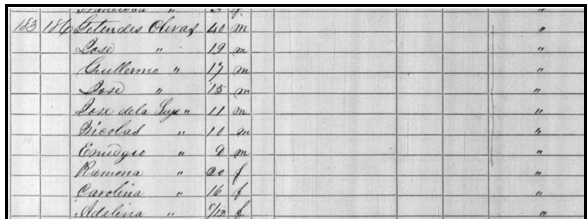 183 186 Olivas 40 m "
Jose " 19 m "
Guillermo " 17 m "
Jose " 15 m "
Jose dela Luz " 11 m "
Nicolas " 10 m "
Emidgio " 9 m "
Ramona " 20 f "
Carolina " 16 f "
Adelina " /12 f "